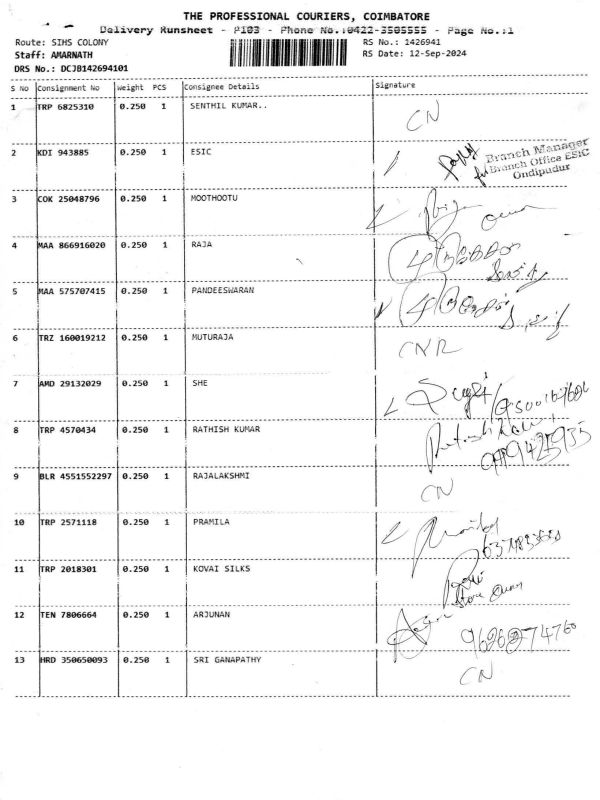 THE PROFESSIONAL COURIERS, COIMBATORE
Delivery Runsheet - P103 - Phone No.:0422-3505555 - Page No.:1
Route: SIHS COLONY RS No.: 1426941
Staff: AMARNATH RS Date: 12-Sep-2024
DRS No.: DCJB142694101
S No Consignment No Weight PCS Consignee Details Signature
1 TRP 6825310 0.250 1 SENTHIL KUMAR.. CN
2 KDI 943885 0.250 1 ESIC
Branch Manager
Branch Office ESIC
Ondipudur
3 COK 25048796 0.250 1 MOOTHOOTU
4 MAA 866916020 0.250 1 RAJA
5 MAA 575707415 0.250 1 PANDEESWARAN
6 TRZ 160019212 0.250 1 MUTURAJA CNR
7 AMD 29132029 0.250 1 SHE
8 TRP 4570434 0.250 1 RATHISH KUMAR
9 BLR 4551552297 0.250 1 RAJALAKSHMI CN
10 TRP 2571118 0.250 1 PRAMILA
11 TRP 2018301 0.250 1 KOVAI SILKS
12 TEN 7806664 0.250 1 ARJUNAN
13 HRD 350650093 0.250 1 SRI GANAPATHY CN